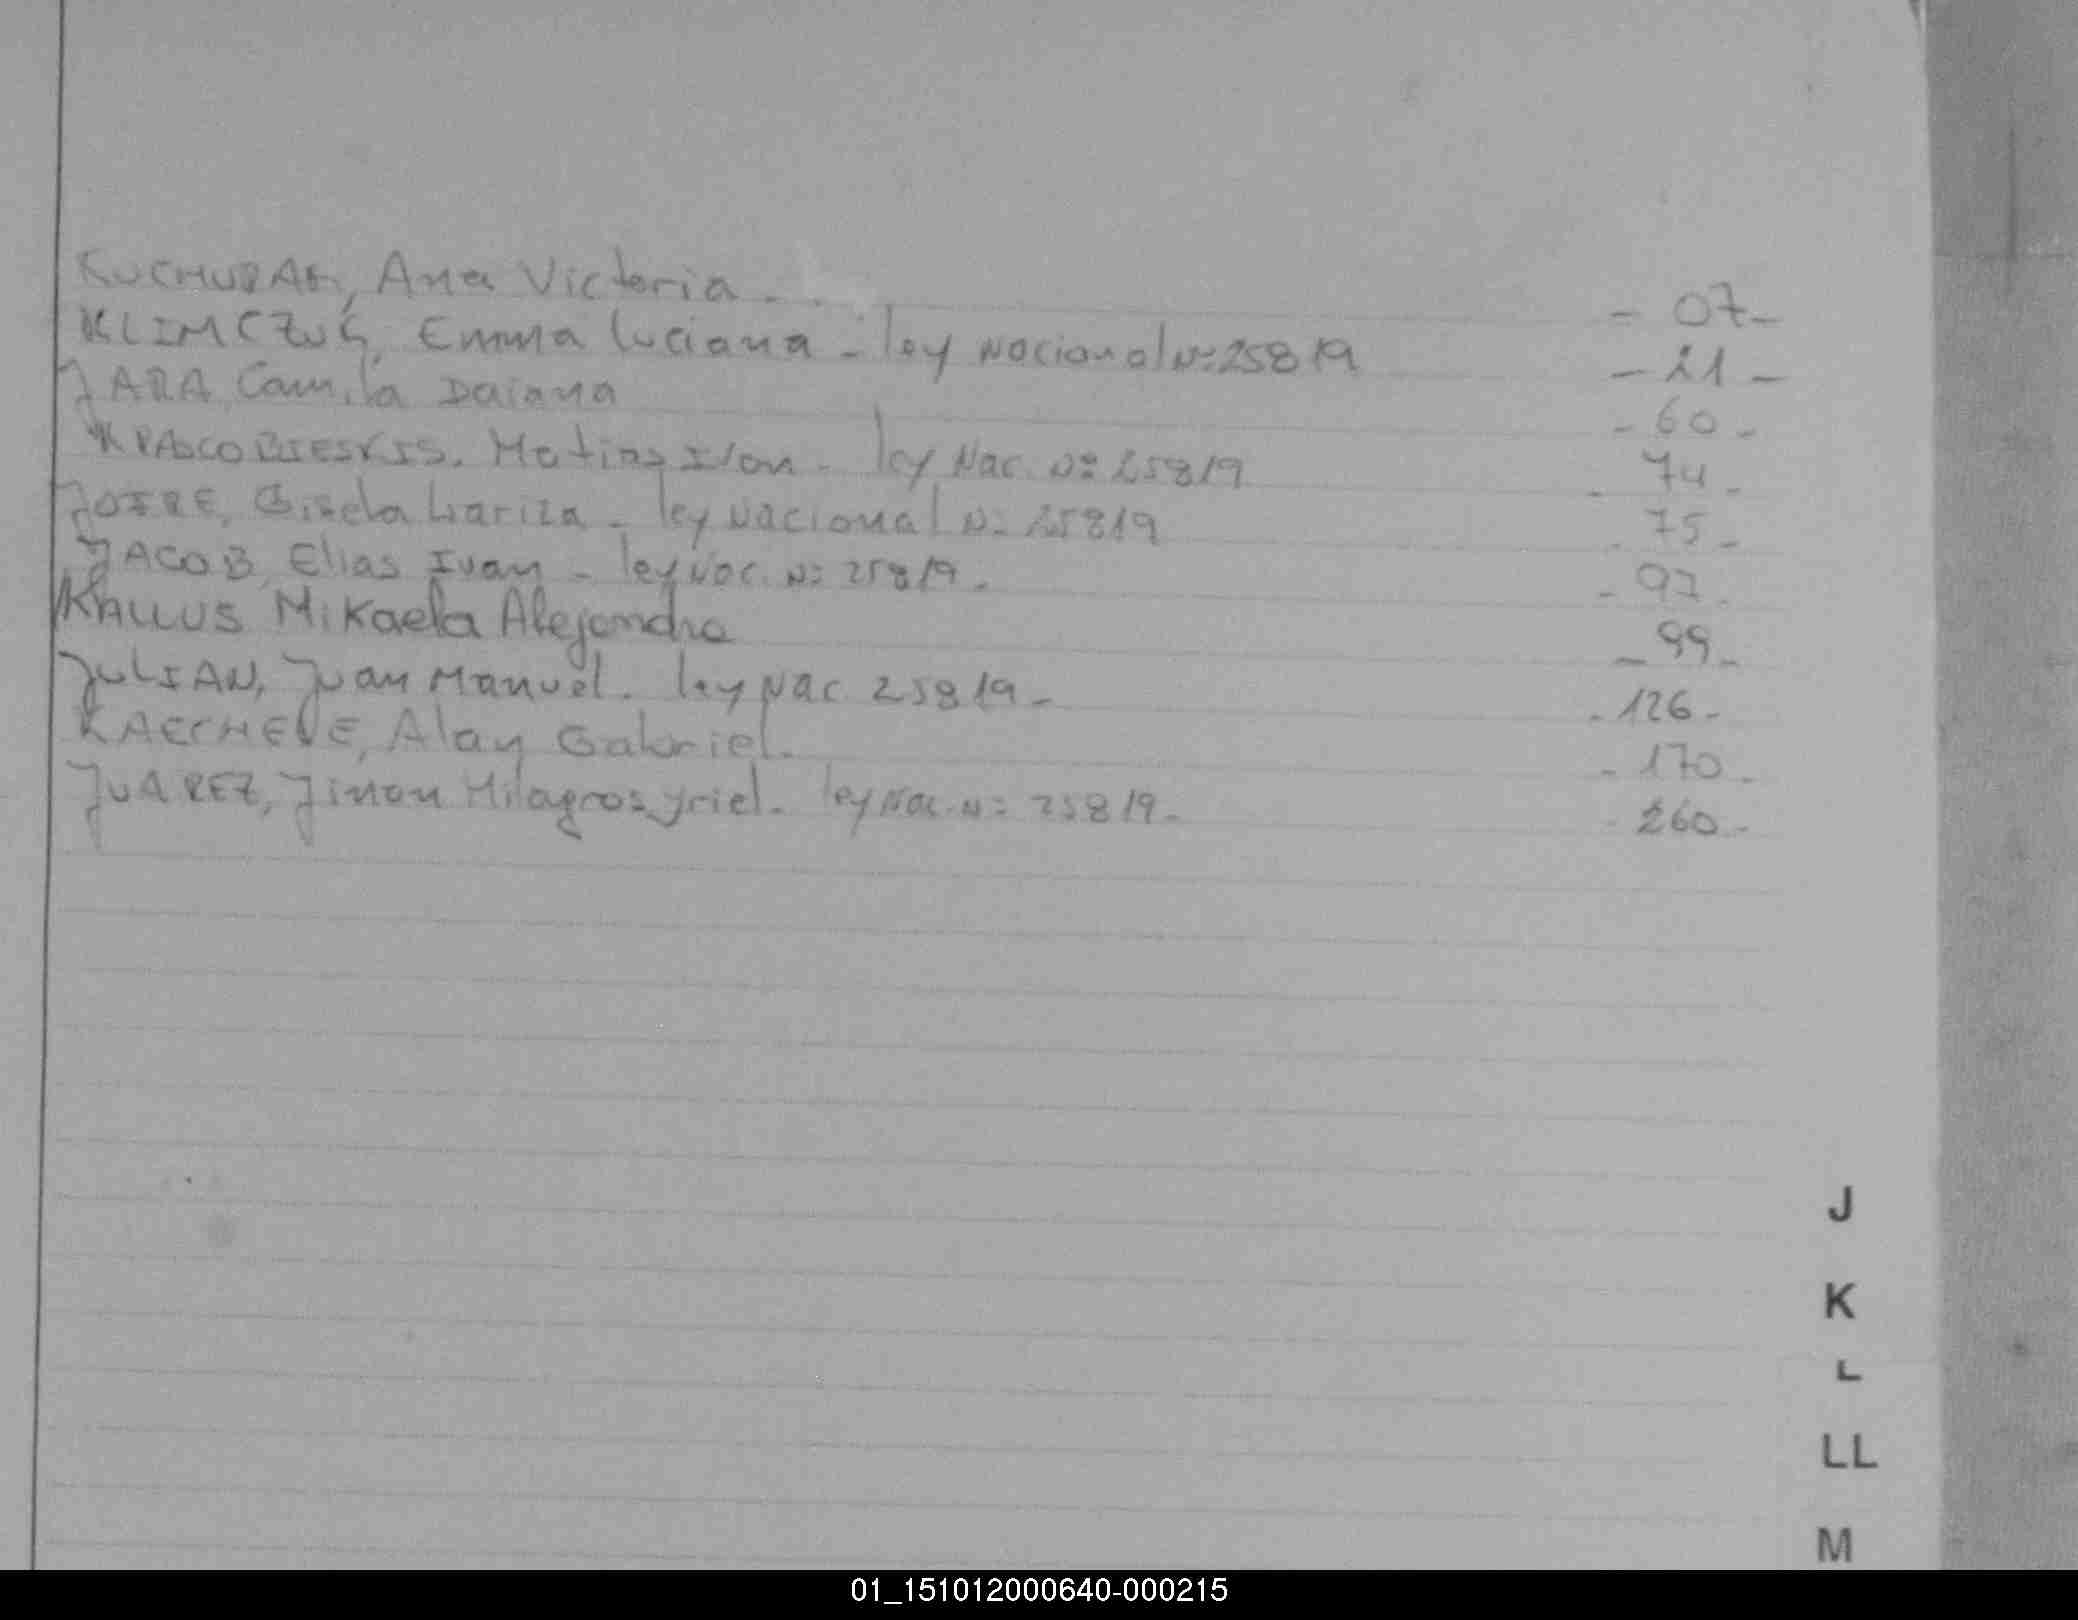 Ana Victoria - - 07-
KLIMCZUK, Emma Luciana - ley Nacional Nº 25819 - 21 -
JARA, Camila Daiana - 60 -
Matias Ilan - ley Nac. Nº 25819 - 74 -
JOTRE, Gisela Lariza - ley Nacional Nº 25819 - 75 -
JACOB, Elias Ivan - ley Nac. Nº 25819 - - 97 -
KALLUS Mikaela Alejandra - 99 -
JULIAN, Juan Manuel. ley Nac 25819 - - 126 -
Alan Gabriel. - 170 -
JUAREZ, Milagros ley Nac. Nº 25819 - - 260 -
J
K
L
LL
M
01_151012000640-000215